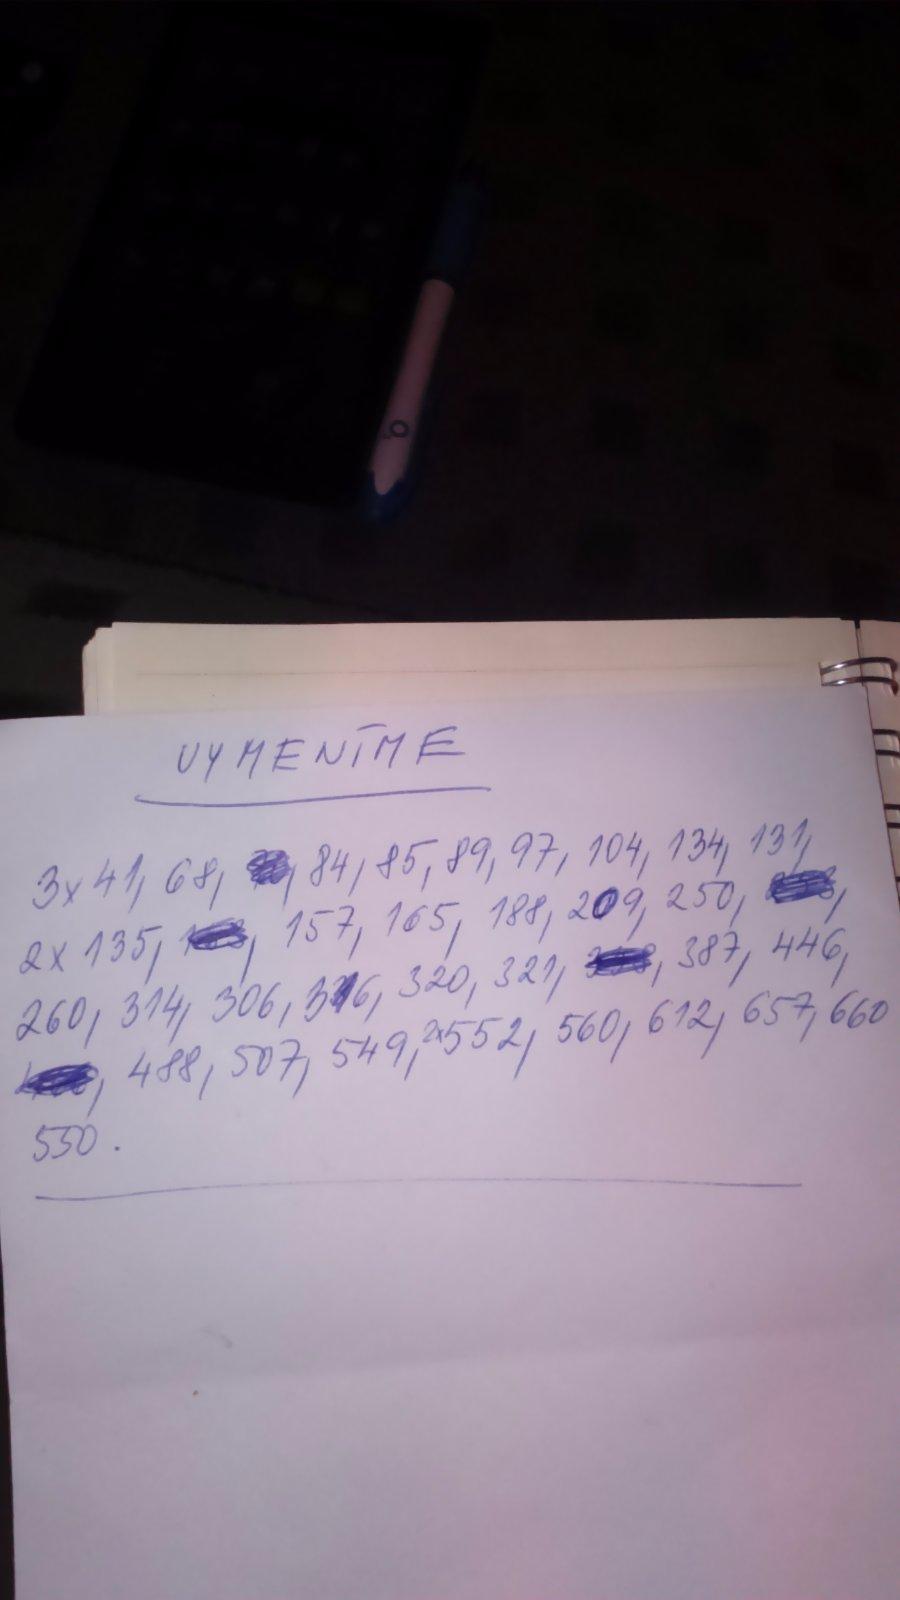 VYMENÍME
3x 41, 68, 84, 85, 89, 97, 104, 134, 131,
2x 135, 157, 165, 188, 209, 250,
260, 314, 306, 316, 320, 321, 387, 446,
488, 507, 549, 2x552, 560, 612, 657, 660
550.